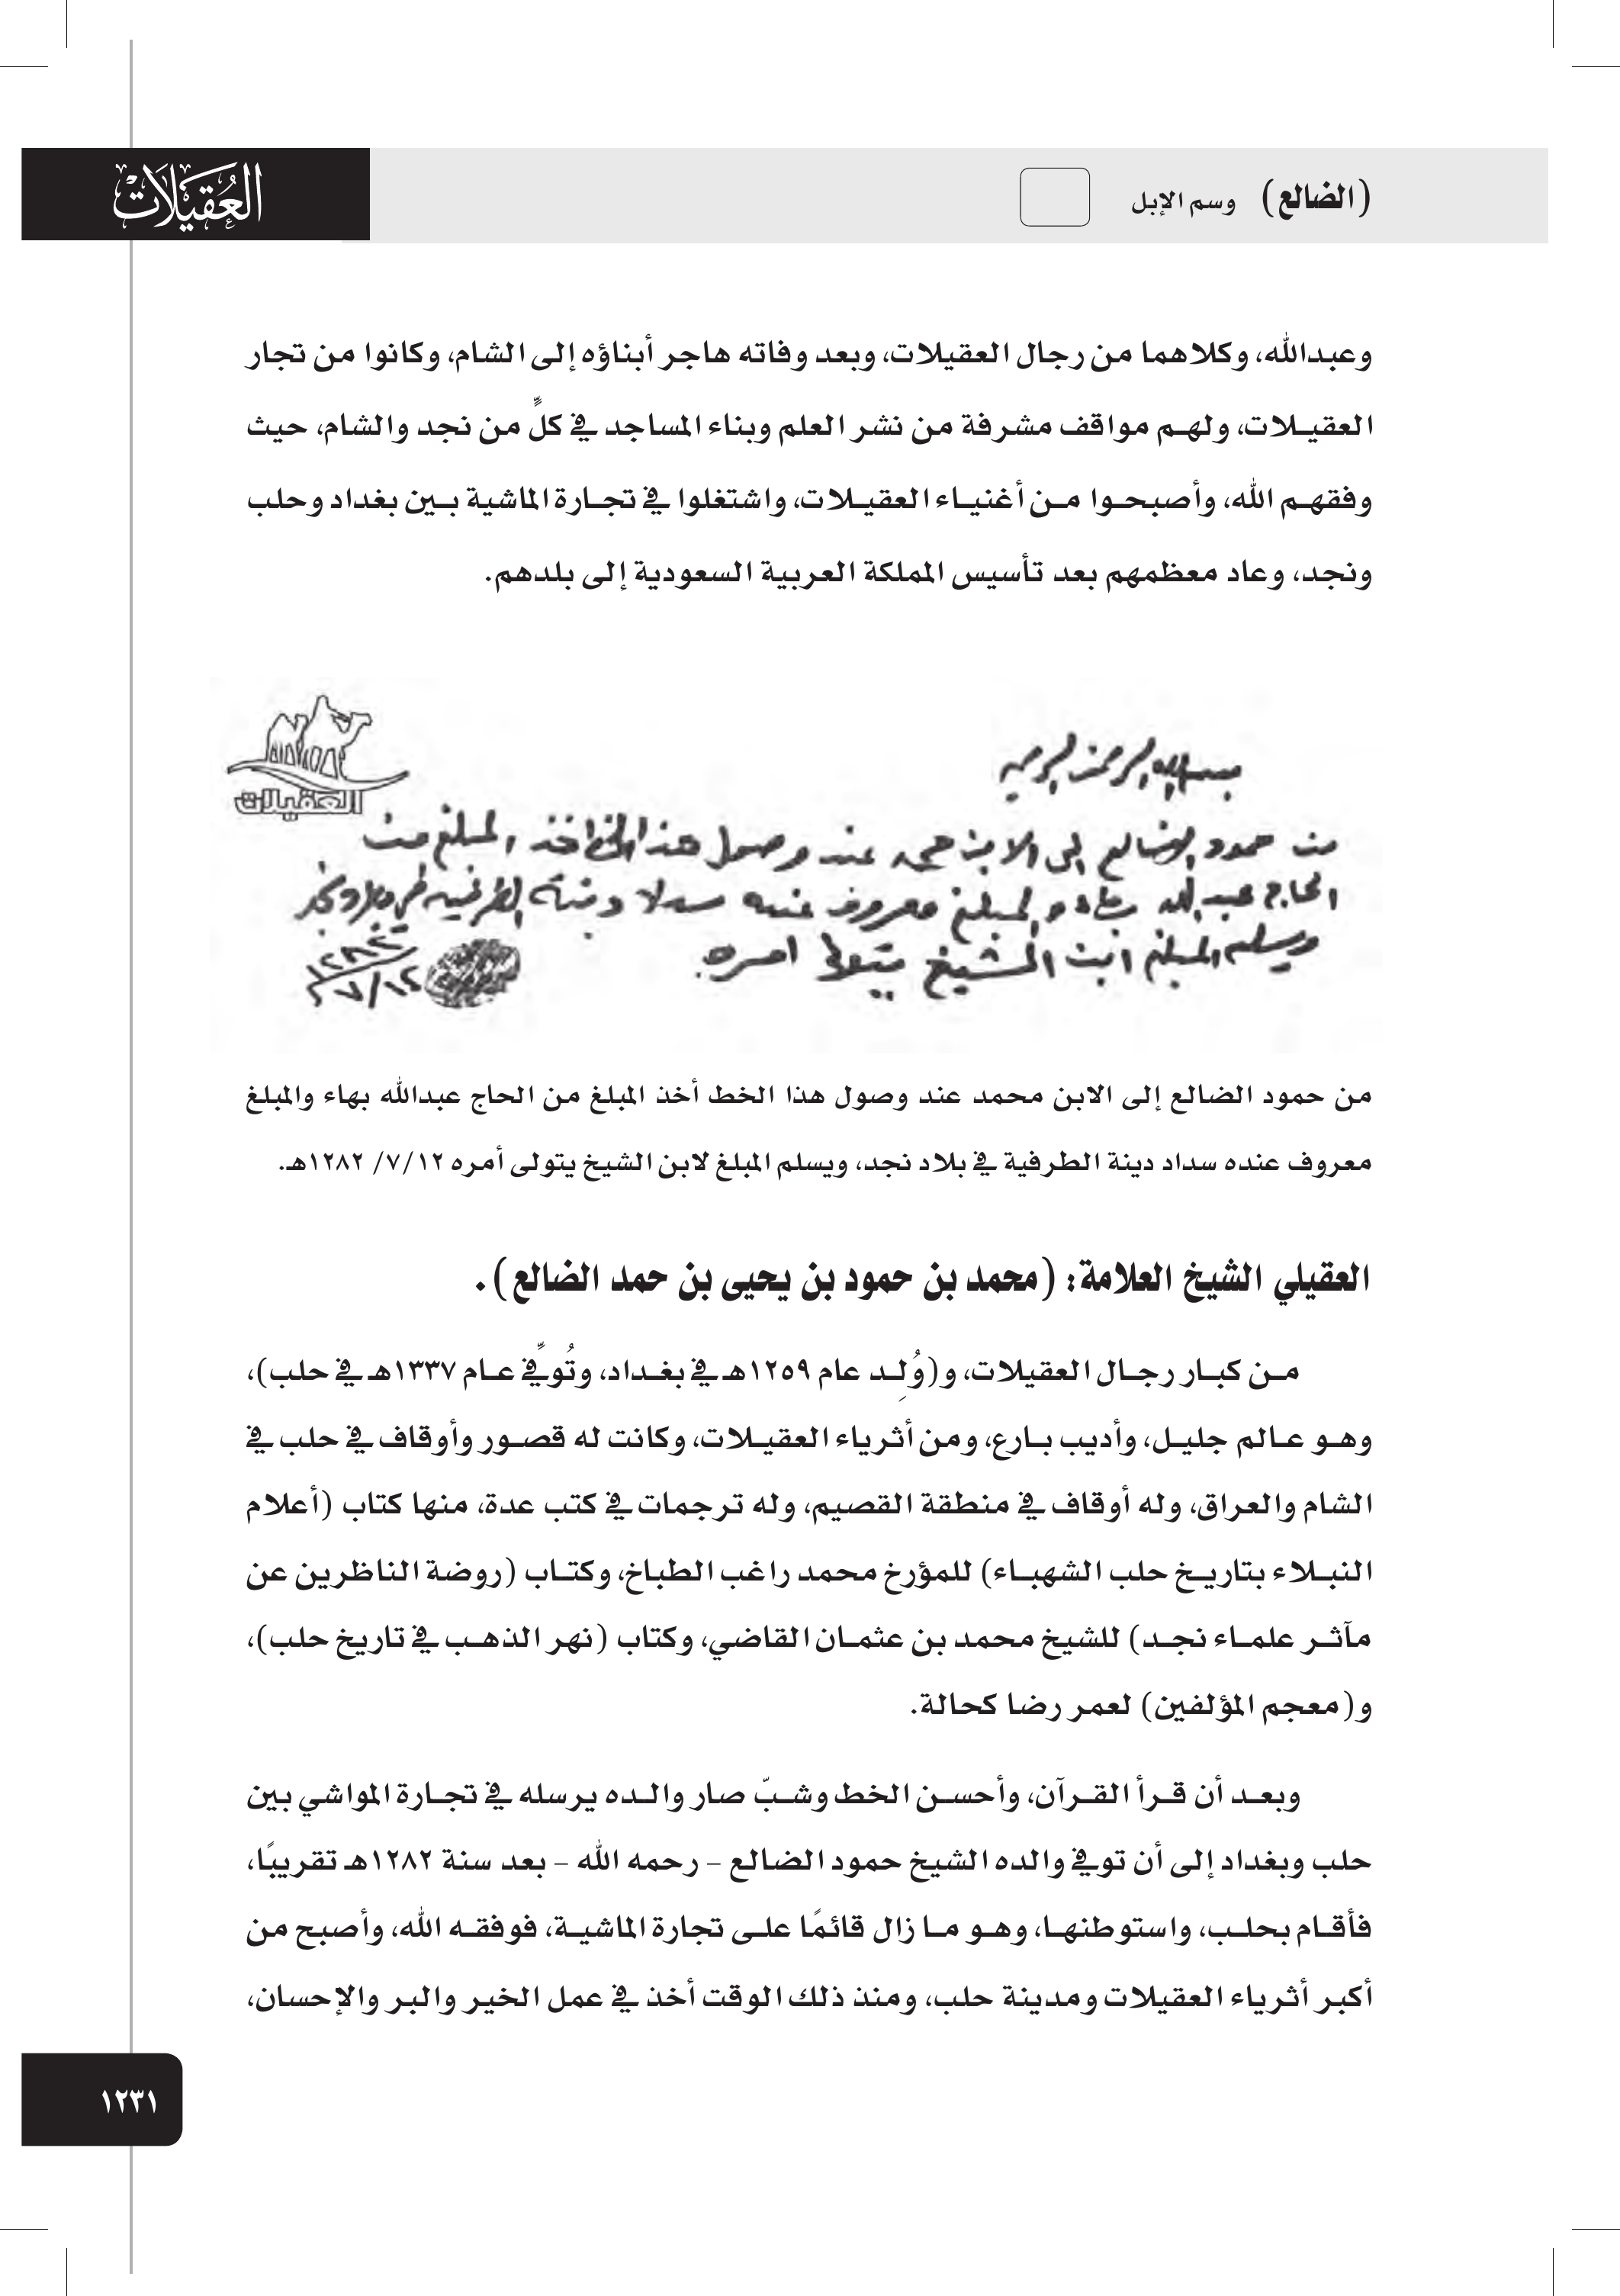 العقيلات
(الضالع) وسم الإبل
وعبدالله، وكلاهما من رجال العقيلات، وبعد وفاته هاجر أبناؤه إلى الشام، وكانوا من تجار
العقيلات، ولهم مواقف مشرفة من نشر العلم وبناء المساجد في كلٍّ من نجد والشام، حيث
وفقهم الله، وأصبحوا من أغنياء العقيلات، واشتغلوا في تجارة الماشية بين بغداد وحلب
ونجد، وعاد معظمهم بعد تأسيس المملكة العربية السعودية إلى بلدهم.
العقيلات
بسم الله الرحمن الرحيم
من حمود الضالع الى الابن محمد عند وصول هذا الخط اخذ المبلغ من
الحاج عبدالله بهاء والمبلغ معروف عنده سداد دينة الطرفيه في بلاد نجد
ويسلم المبلغ ابن الشيخ يتولا امره.
١٢٨٢
٧/١٢
من حمود الضالع إلى الابن محمد عند وصول هذا الخط أخذ المبلغ من الحاج عبدالله بهاء والمبلغ
معروف عنده سداد دينة الطرفية في بلاد نجد، ويسلم المبلغ لابن الشيخ يتولى أمره ٧/١٢/ ١٢٨٢هـ.
العقيلي الشيخ العلامة: (محمد بن حمود بن يحيى بن حمد الضالع).
من كبار رجال العقيلات، و(وُلِد عام ١٢٥٩هـ في بغداد، وتُوفِّي عام ١٣٣٧هـ في حلب)،
وهو عالم جليل، وأديب بارع، ومن أثرياء العقيلات، وكانت له قصور وأوقاف في حلب في
الشام والعراق، وله أوقاف في منطقة القصيم، وله ترجمات في كتب عدة، منها كتاب (أعلام
النبلاء بتاريخ حلب الشهباء) للمؤرخ محمد راغب الطباخ، وكتاب (روضة الناظرين عن
مآثر علماء نجد) للشيخ محمد بن عثمان القاضي، وكتاب (نهر الذهب في تاريخ حلب)،
و(معجم المؤلفين) لعمر رضا كحالة.
وبعد أن قرأ القرآن، وأحسن الخط وشبّ صار والده يرسله في تجارة المواشي بين
حلب وبغداد إلى أن توفي والده الشيخ حمود الضالع – رحمه الله – بعد سنة ١٢٨٢هـ تقريبًا،
فأقام بحلب، واستوطنها، وهو ما زال قائمًا على تجارة الماشية، فوفقه الله، وأصبح من
أكبر أثرياء العقيلات ومدينة حلب، ومنذ ذلك الوقت أخذ في عمل الخير والبر والإحسان،
١٢٣١